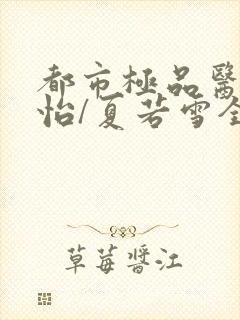 都市極品醫
怡/夏若雪全
草莓醬江